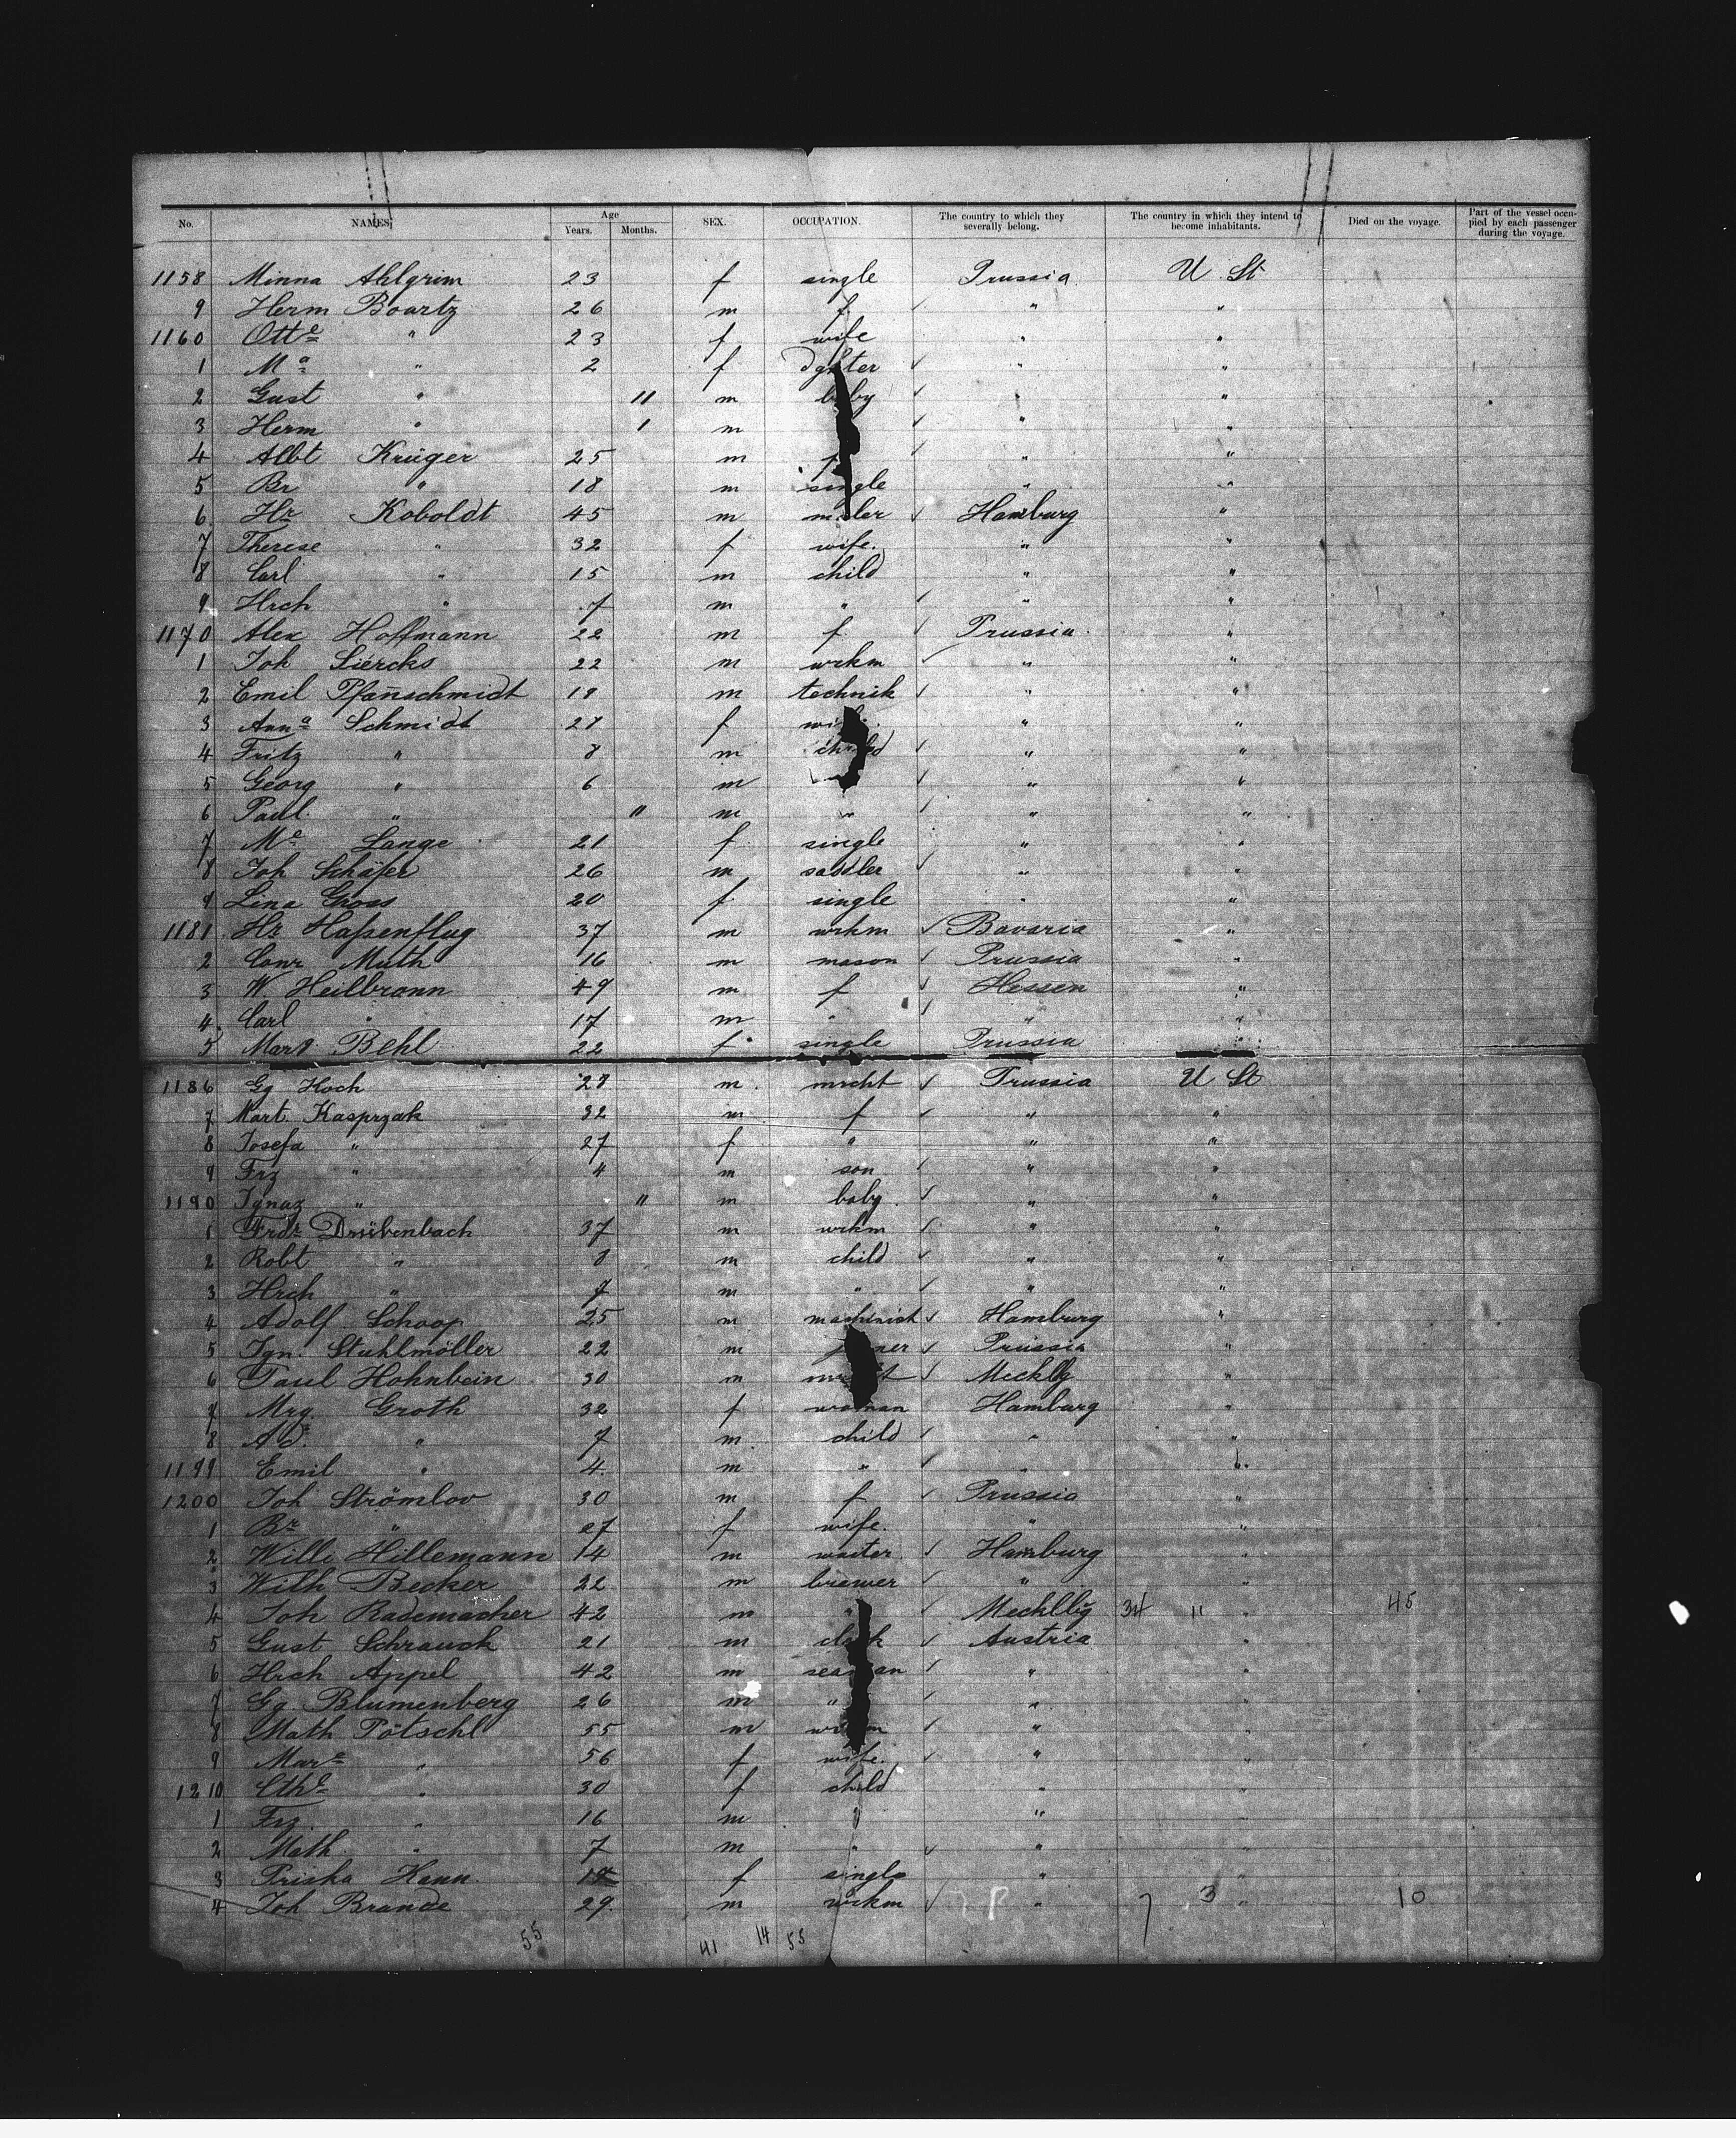 No. NAMES. Age Years. Months. SEX. OCCUPATION. The country to which they severally belong. The country in which they intend to become inhabitants. Died on the voyage. Part of the vessel occupied by each passenger during the voyage.
1158 Minna Ahlgrim 23 f single Prussia U St
9 Herm Boartz 26 m f " "
1160 Otte " 23 f wife " "
1 Ma " 2 f dghter " "
2 Gust " 11 m baby " "
3 Herm " 1 m " "
4 Albt Krüger 25 m " "
5 Br " 18 m single " "
6 Hr Koboldt 45 m Hamburg "
7 Therese " 32 f wife. " "
8 Carl " 15 m child " "
9 Hrch " 7 m " " "
1170 Alex Hoffmann 22 m f Prussia "
1 Joh Siercks 22 m wrkm " "
2 Emil Pfanschmidt 18 m technik " "
3 Anna Schmidt 27 f " "
4 Fritz " 8 m child " "
5 Georg " 6 m " "
6 Paul " 11 m " " "
7 Me Lange 21 f single " "
8 Joh Schäfer 26 m saddler " "
9 Lina Gross 20 f single " "
1181 Hr Haßenflug 37 m wrkm Bavaria "
2 Conr Muth 16 m mason Prussia "
3 W. Heilbronn 49 m f Hessen "
4 Carl " 17 m " " "
5 Mart Behl 22 f single Prussia "
1186 Gg Hoch 28 m mrcht Prussia U St
7 Mart. Kasprzak 32 m f " "
8 Josefa " 27 f " " "
9 Frz " 4 m son " "
1190 Ignaz " 11 m baby " "
1 Frdr Drübenbach 37 m wrkm " "
2 Robt " 8 m child " "
3 Hrch " 7 m " " "
4 Adolf Schoop 25 m machinist Hamburg "
5 Ign. Stuhlmöller 22 m Prussia "
6 Paul Hohnbein 30 m Mecklbg "
7 Mrg. Groth 32 f woman Hamburg "
8 Ad. " 7 m child " "
1199 Emil " 4 m " " "
1200 Joh Strömlov 30 m f Prussia "
1 Br " 27 f wife. " "
2 Willi Hillemann 14 m waiter Hamburg "
3 Wilh Becker 22 m brewer " "
4 Joh Rademacher 42 m " Mecklbg 34 11 " 45
5 Gust Schrauck 21 m clerk Austria "
6 Hrch Appel 42 m seaman " "
7 Gg Blumenberg 26 m " " "
8 Math Pötschl 55 m " "
9 Mara " 56 f wife. " "
1210 Cthe " 30 f child " "
1 Frz. " 16 m " "
2 Math " 7 m " " "
3 Priska Hann f single " "
4 Joh Brande 29 m wrkm " 7 3 " 10
55 41 14 55